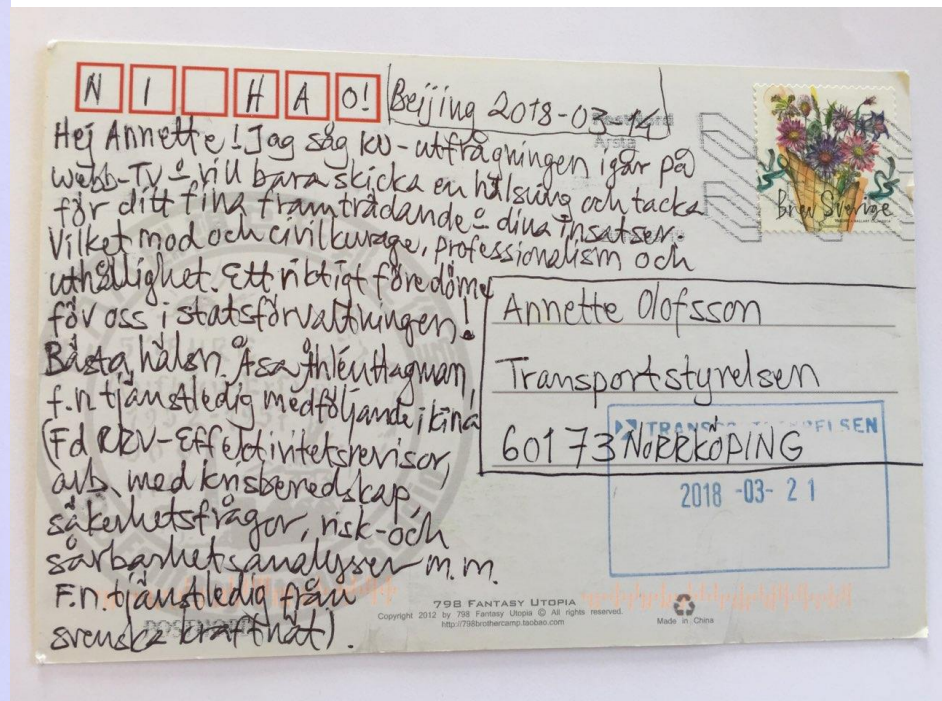 NI HAO!
Beijing 2018-03-14
Hej Annette! Jag såg KU-utfrågningen igår på
webb-TV o vill bara skicka en hälsning och tacka
för ditt fina framträdande o dina insatser.
Vilket mod och civilkurage, professionalism och
uthållighet. Ett riktigt föredöme
för oss i statsförvaltningen!
Bästa hälsn. Åsa Ahlén Hagman,
f.n tjänstledig medföljande i Kina
(Fd RRV-Effektivitetsrevisor,
arb. med krisberedskap,
säkerhetsfrågor, risk-och
sårbarhetsanalyser m.m.
F.n. tjänstledig från
svenska kraftnät).
Årsta
Brev Sverige
Annette Olofsson
Transportstyrelsen
60173 NORRKÖPING
TRANSPORTSTYRELSEN
2018 -03- 2 1
POSTNORD
798 FANTASY UTOPIA
Copyright 2012 by 798 Fantasy Utopia © All rights reserved.
http://798brothercamp.taobao.com
Made in China